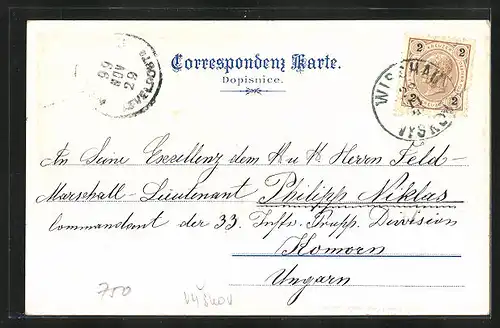 Correspondenz Karte.
Dopisnice.
2 2
2 2
99
NOV
29
WISCHAU
VYŠKOV
An Seine Exzellenz dem K u K Herrn Feld-
Marschall-Lieutenant Philipp Niklas
Commandant der 33. Inftr. Trupp. Division
Komorn
Ungarn
750
VYŠKOV